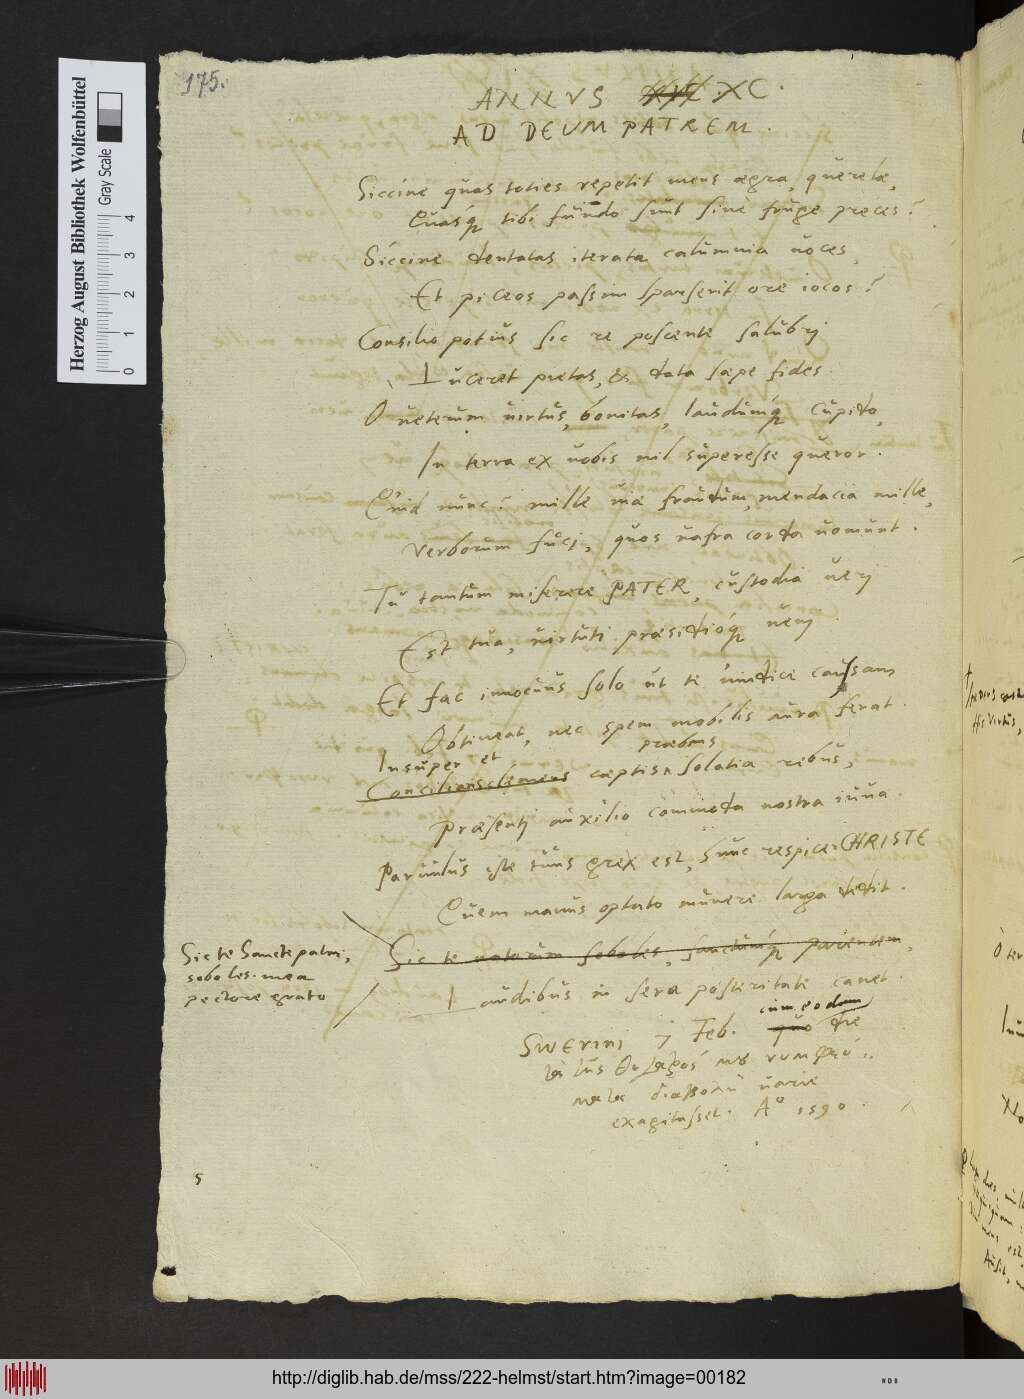 175.
ANNVS XC.
AD DEUM PATREM.
Siccine quas toties repetit mens ægra, querelæ,
Quasq́ tibi fundo sunt sine fruge preces?
Siccine dentatas iterata calumnia uoces,
Et piceos passim sparserit ore iocos?
Consilio potius sic re poscente salubrj
Luceret pietas, & data sæpe fides.
O ueterum uirtus, bonitas, laudumq́ cupido,
In terra ex uobis nil superesse queror.
Quid nunc? mille uiæ fraudum, mendacia mille,
Verborum fucj, quos uafra corda uomunt.
Tu tantum miserere PATER, custodia uerj
Est tua, uirtuti præsidioq́ uenj.
Et fac innocuus solo ut te uindice causam
Obtineat, nec spem mobilis aura ferat.
præbens
Insuper et
Concilians clemens cæptis solatia rebus,
Præsentj auxilio commoda nostra iuua.
Paruulus iste tuus grex est, hunc respice CHRISTE
Quem manus optato munere larga dedit.
Sic te Sancte patrj,
soboles mea
pectore grato
Sic te natorum soboles, sanctumq́ parentem,
Laudibus in sera posteritate canet.
Swerini 7 Feb. quo die
cum eodem
male uarie
exagitasset. Aº 1590.
5
Herzog August Bibliothek Wolfenbüttel
Gray Scale
0 1 2 3 4
http://diglib.hab.de/mss/222-helmst/start.htm?image=00182